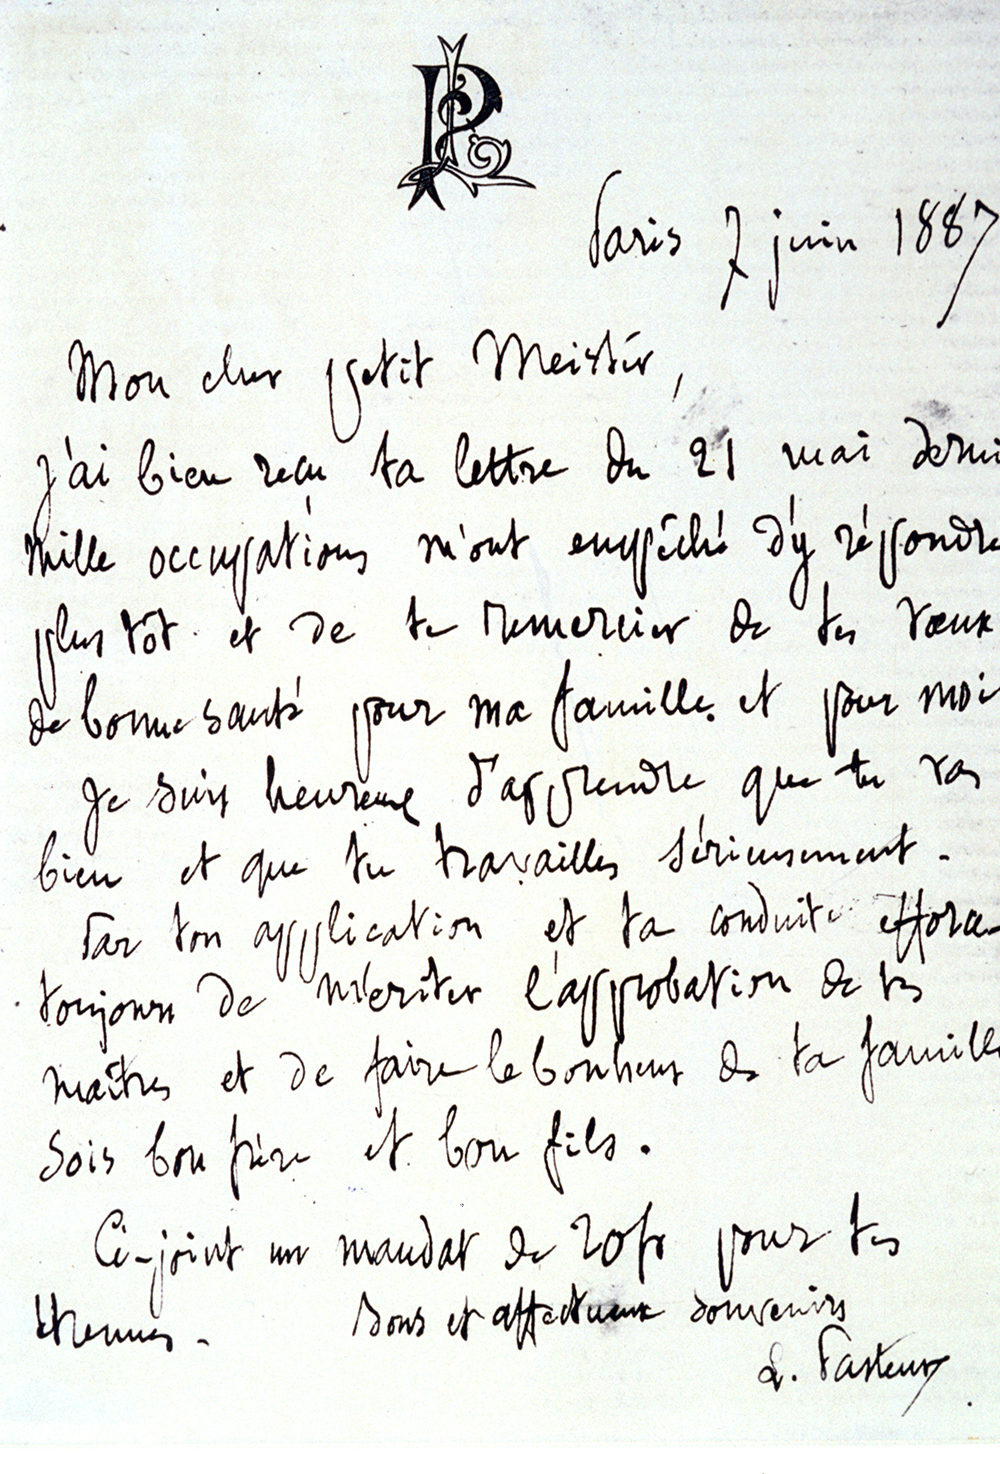 Paris 7 juin 1887
Mon cher petit Meister,
j'ai bien reçu ta lettre du 21 mai derni
Mille occupations m'ont empêché d'y répondre
plus tôt et de te remercier de tes vœux
de bonne santé pour ma famille et pour moi
Je suis heureux d'apprendre que tu vas
bien et que tu travailles sérieusement.
Par ton application et ta conduite efforce-
toujours de mériter l'approbation de tes
maîtres et de faire le bonheur de ta famille
Sois bon frère et bon fils.
Ci-joint un mandat de 20 fr pour tes
étrennes. Bons et affectueux souvenirs
L. Pasteur